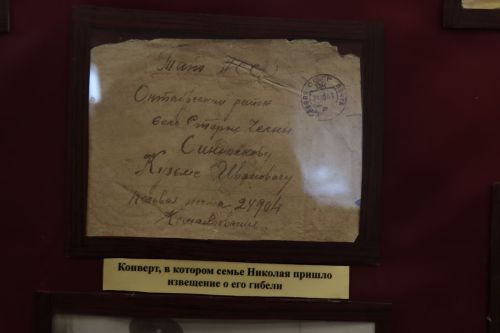 Тат АССР
Октябрьский район
село Старые Челны
Кузьме Ивановичу
Полевая почта 24904
Конверт, в котором семье Николая пришло
извещение о его гибели